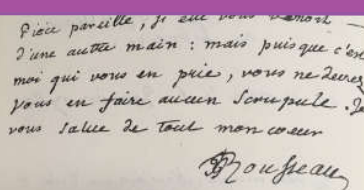 Pièce pareille, je vous
d'une autre main : mais puisque c'est
moi qui vous en prie, vous ne devez
vous en faire aucun Scrupule. Je
vous salue de tout mon coeur
JJRousseau